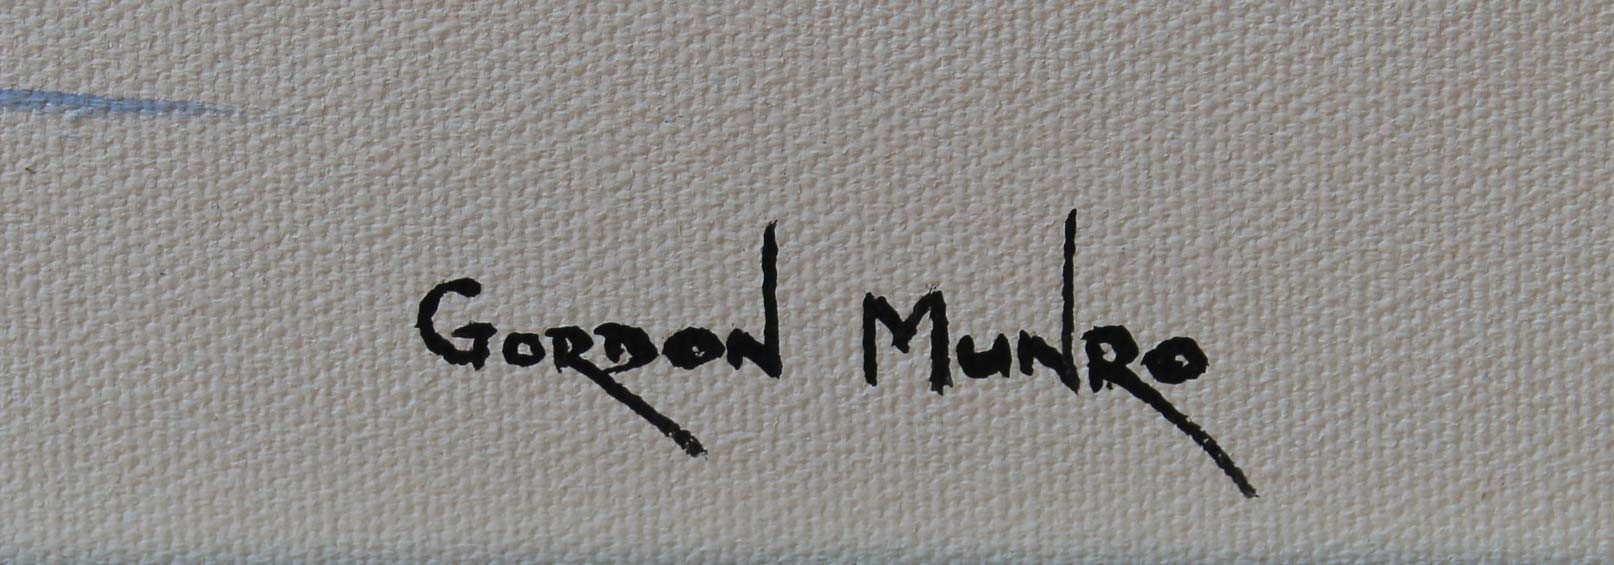 Gordon Munro